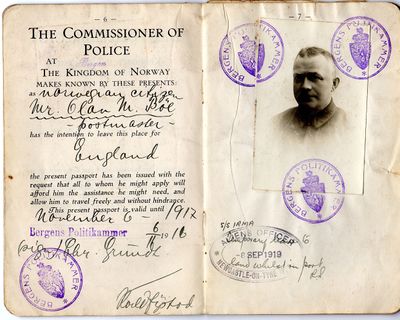 — 6 —
THE COMMISSIONER OF
POLICE
AT Bergen
THE KINGDOM OF NORWAY
MAKES KNOWN BY THESE PRESENTS:
as norwegian citizen
Mr. Olan M. Boe
postmaster
has the intention to leave this place for
England
the present passport has been issued with the
request that all to whom he might apply will
afford him the assistance he might need, and
allow him to travel freely and without hindrance.
This present passport is valid until
November 6 - 1917
Bergens Politikammer 6/11 1916
BERGENS POLITIKAMMER
— 7 —
BERGENS POLITIKAMMER
BERGENS POLITIKAMMER
BERGENS POLITIKAMMER
S/S IRMA
ALIENS OFFICER
6 SEP 1919
NEWCASTLE-ON-TYNE
land whilst in port